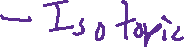 - Isotopic